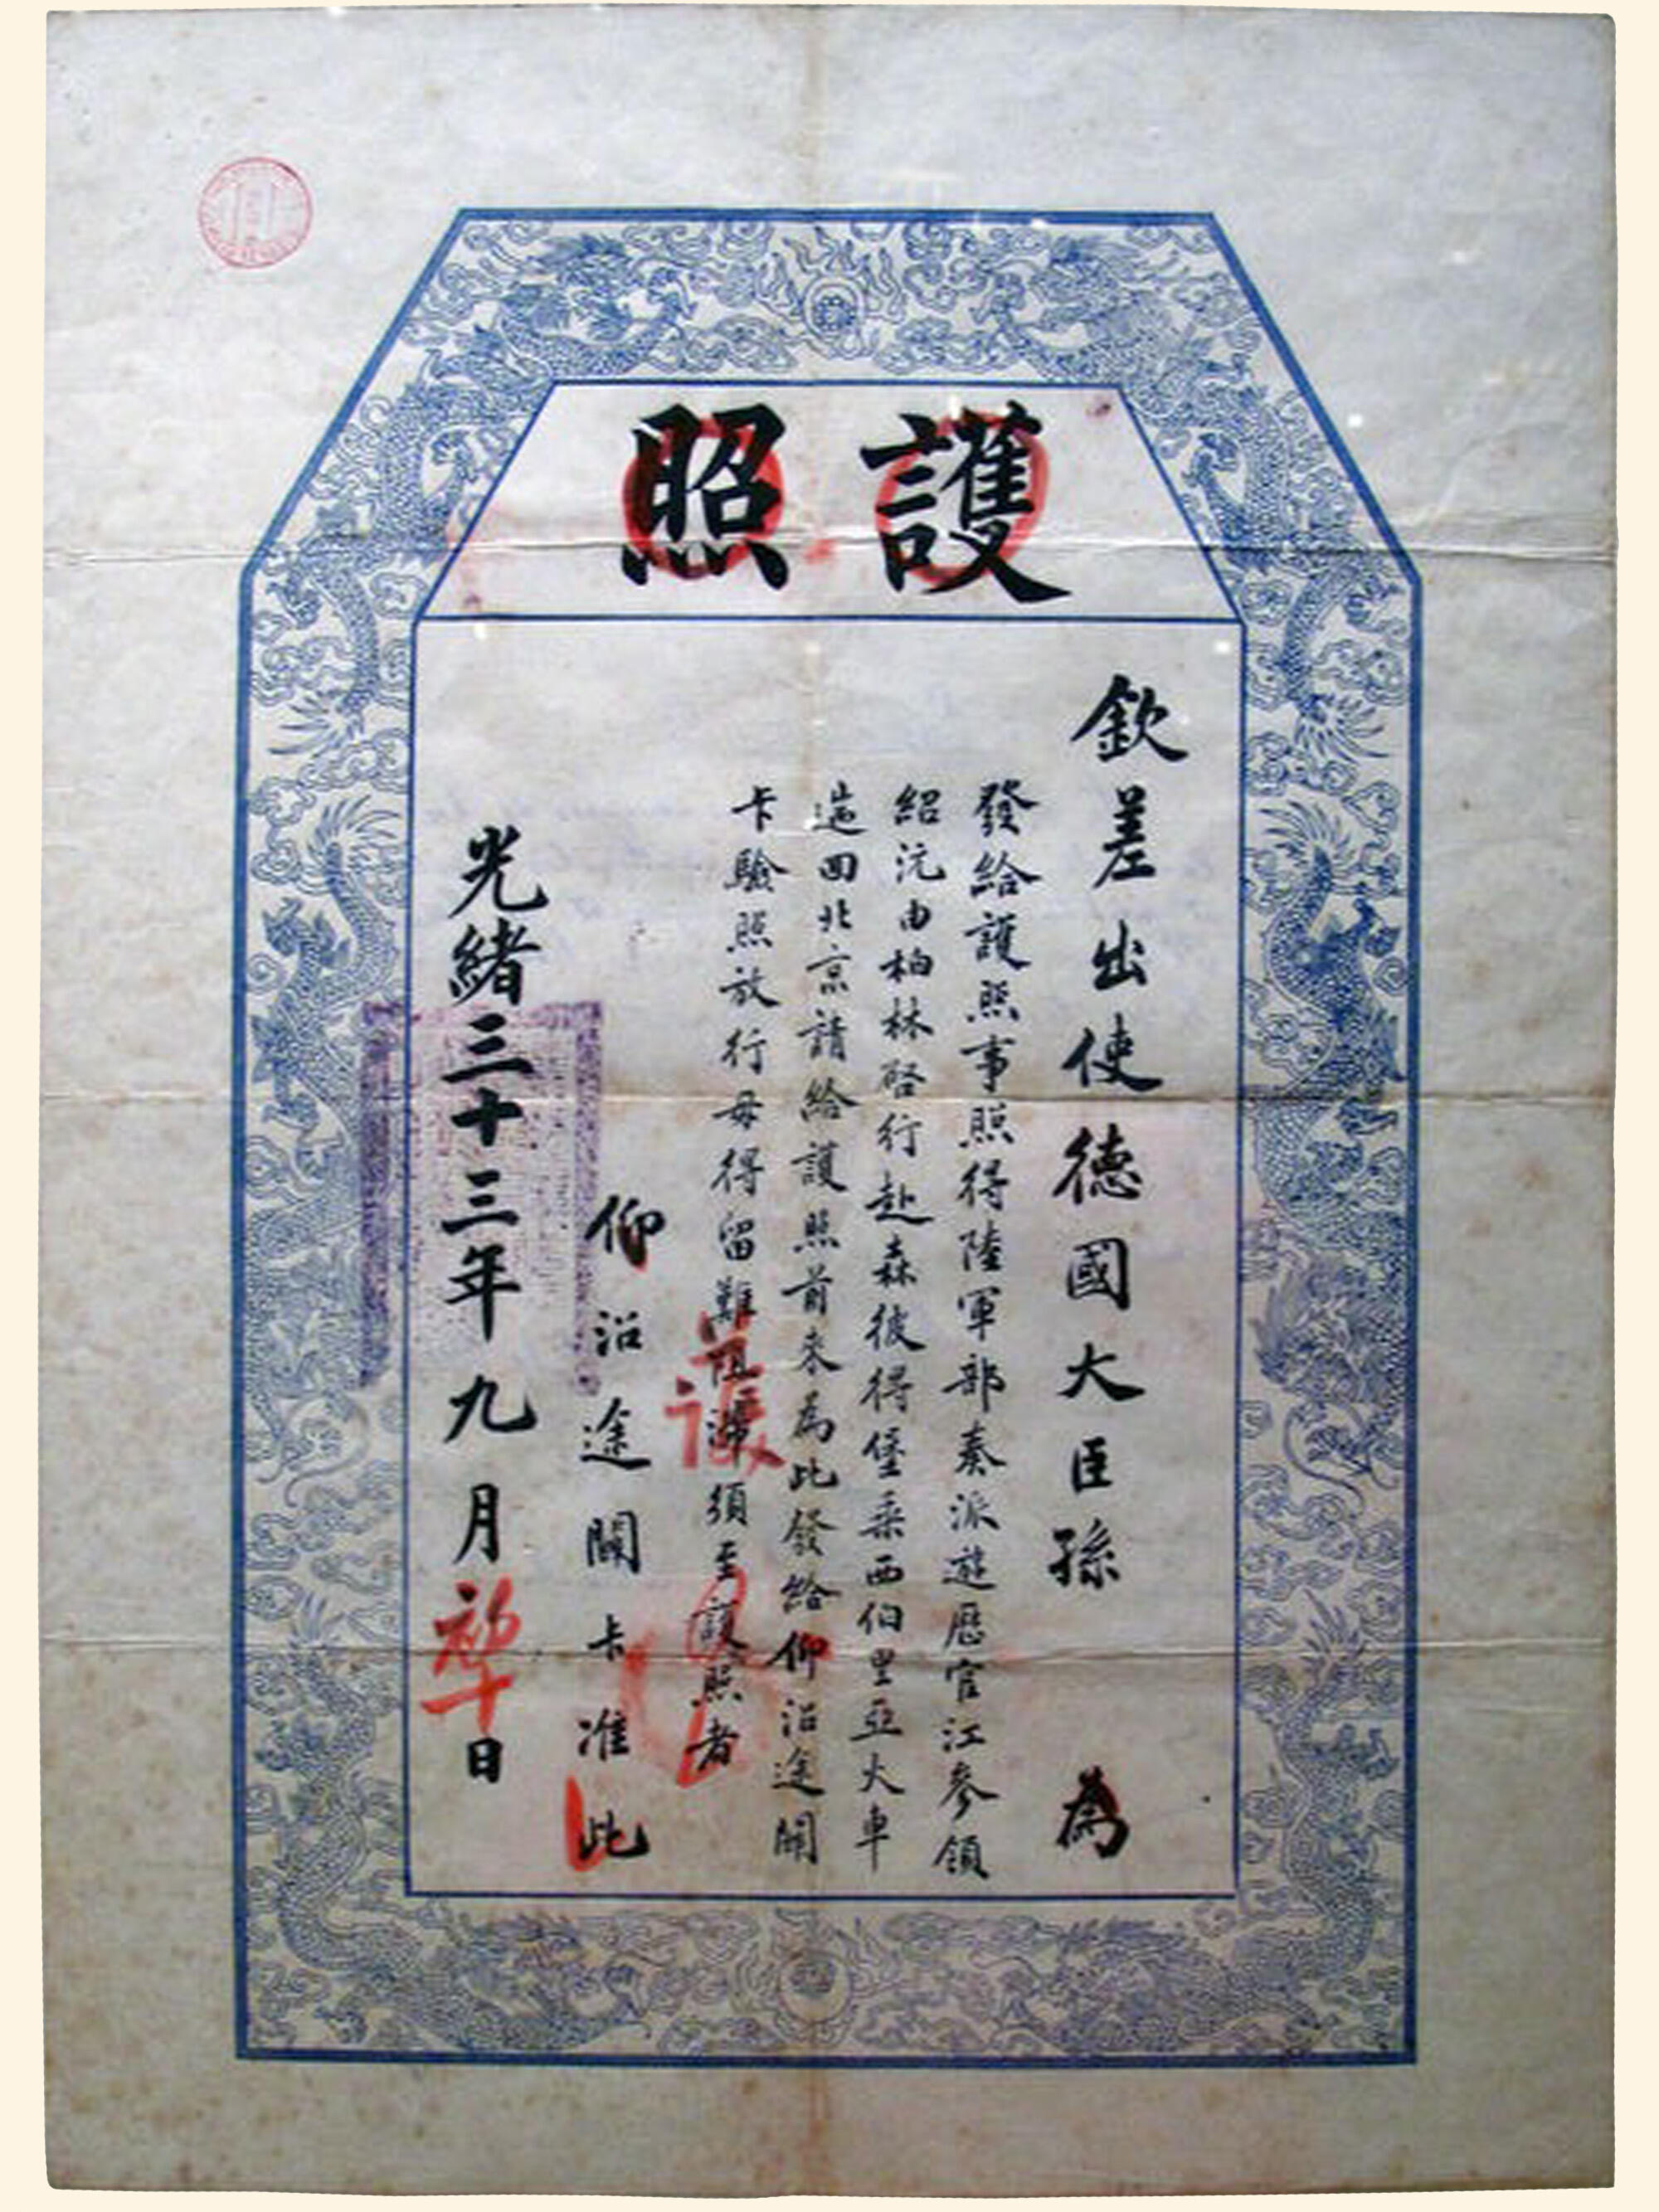 護照
欽差出使德國大臣孫 為
發給護照事照得陸軍部奏派遊歷官江參領
紹沅由柏林啓行赴森彼得堡乘西伯里亞火車
遄回北京請給護照前來為此發給仰沿途關
卡驗照放行毋得留難阻滯須至護照者
仰沿途關卡准此
光緒三十三年九月初十日